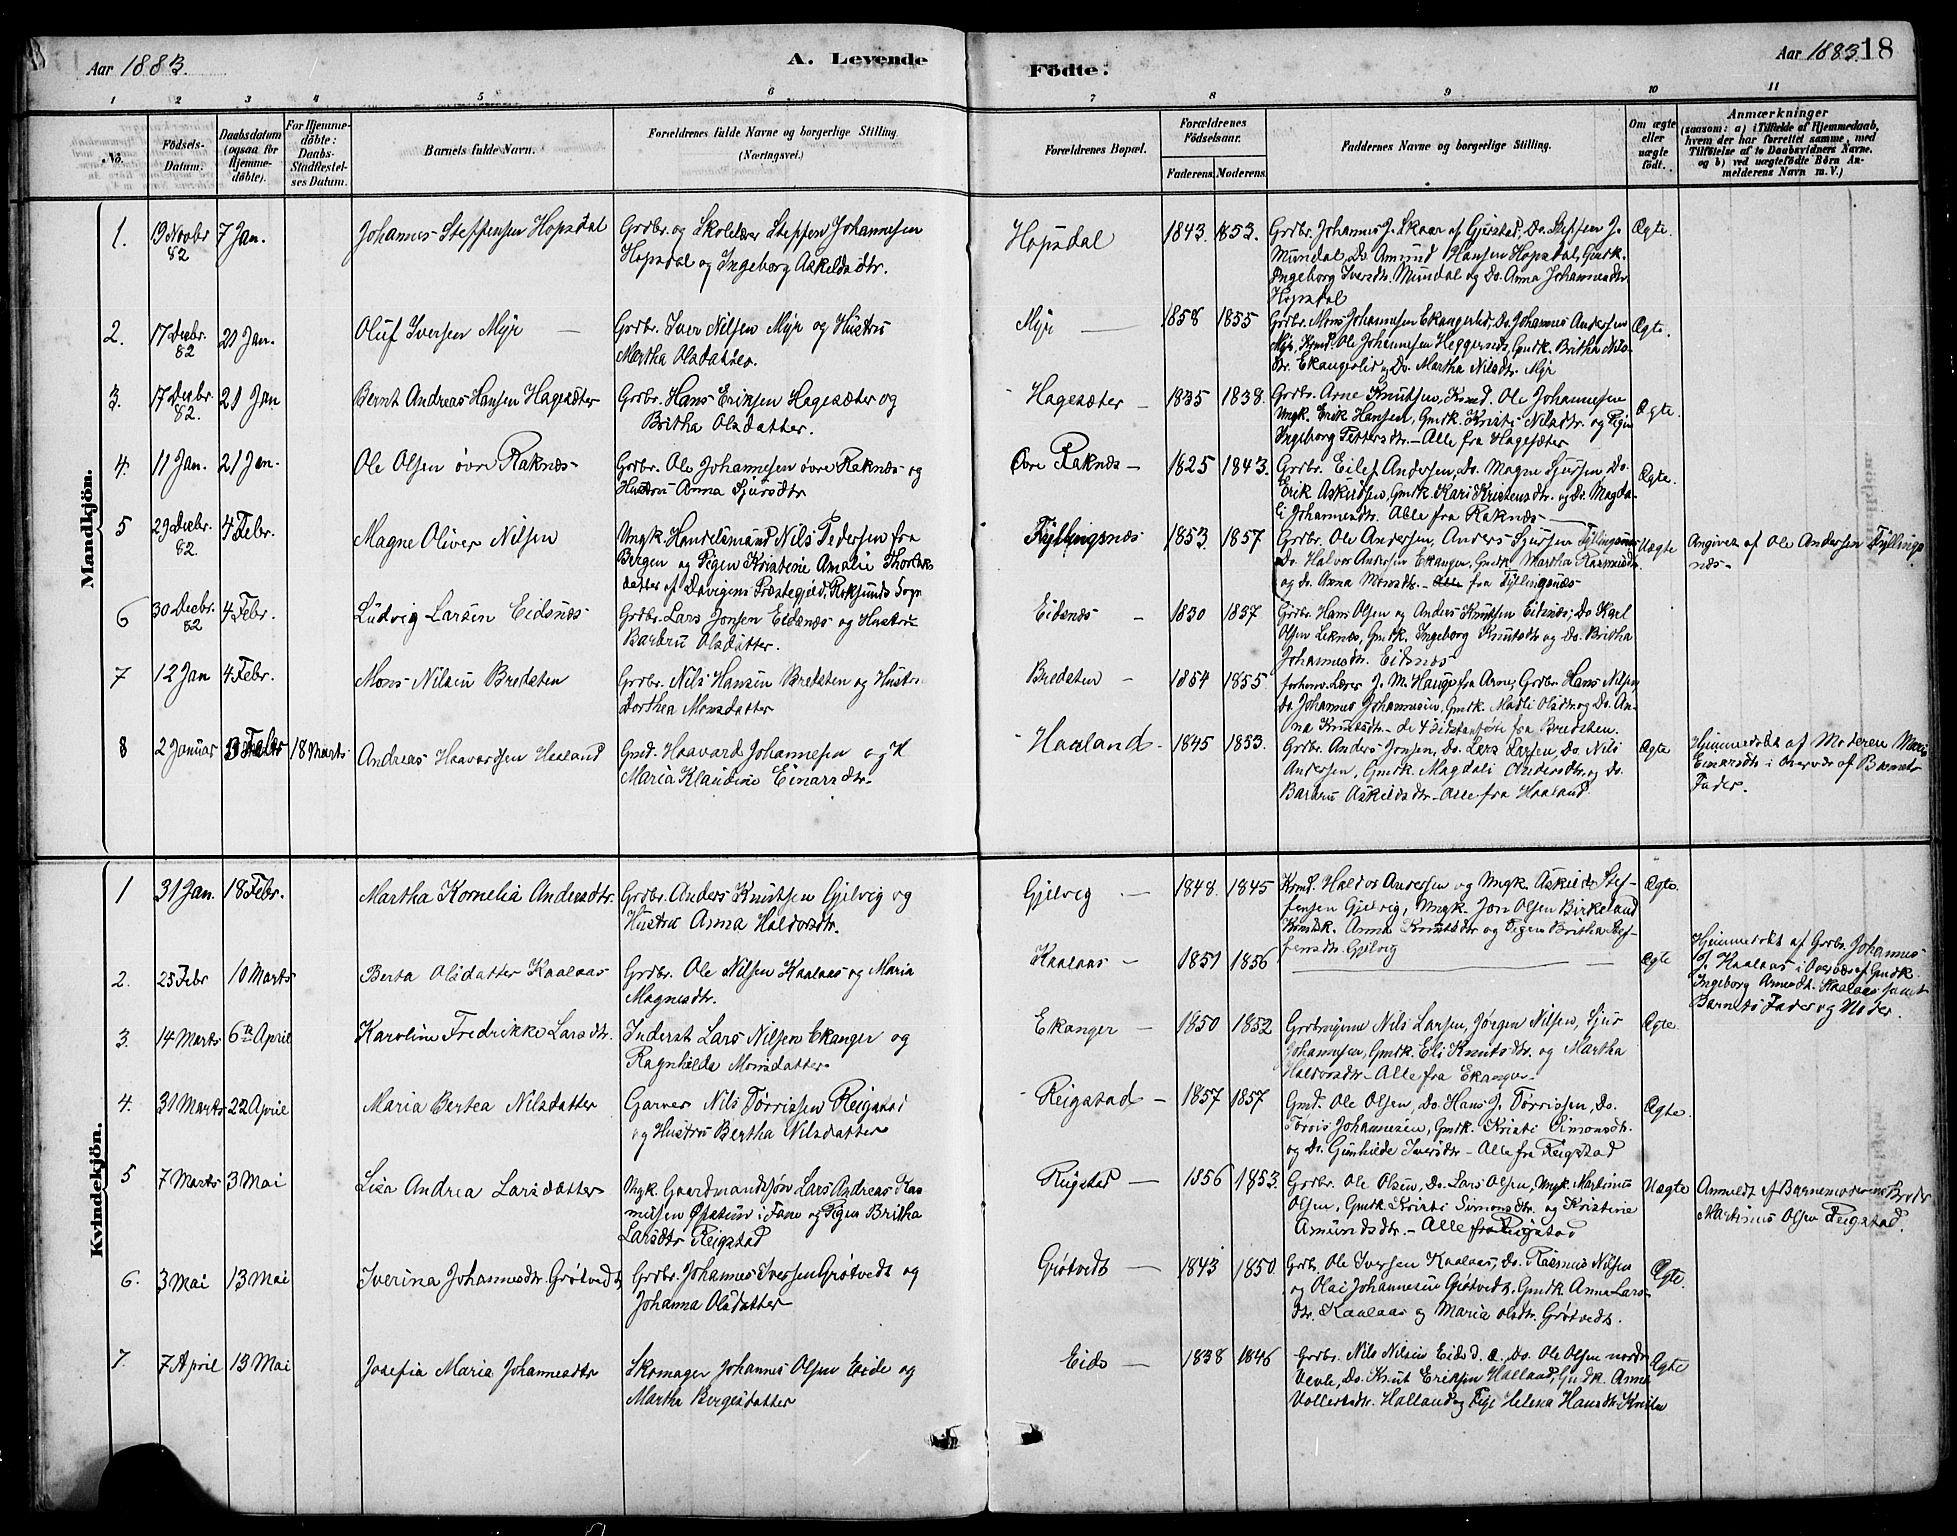 Aar 1883.
A. Levende
Födte.
Aar 1883.
18
1 2 3 4 5 6 7 8 9 10 11
No.
Födsels-
Datum.
Daabsdatum
(ogsaa for
Hjemme-
døbte).
For Hjemme-
döbte:
Daabs-
Stadfæstel-
ses Datum.
Barnets fulde Navn.
Forældrenes fulde Navne og borgerlige Stilling.
(Næringsvei.)
Forældrenes Bopæl.
Forældrenes
Födselsaar.
Faderens. Moderens.
Faddernes Navne og borgerlige Stilling.
Om ægte
eller
uægte
födt.
Anmærkninger
(saasom: a) i Tilfælde af Hjemmedaab,
hvem der har forrettet samme, med
Tilføielse af to Daabsvidners Navne,
og b) ved uægtefödte Börn An-
melderens Navn m. V.)
Mandkjön.
1. 19 Novbr 82
7 Jan.
Johannes Steffensen Hopsdal
Grdbr. og Skolelærer Steffen Johannesen
Hopsdal og Ingeborg Askeldsdtr.
Hopsdal
1843. 1853.
Grdbr. Johannes J. Skaar af Gjerstad, Do. Steffen J.
Mundal, Do. Amund Hansen Hopsdal, Gmdk.
Ingeborg Iversdtr. Mundal og Do. Anna Johannesdtr
Hopsdal
Ægte.
2. 17 Decbr. 82
21 Jan.
Oluf Iversen Myr
Grdbr. Iver Nilsen Myr og Hustru
Martha Olsdatter.
Myr
1858 1855
Grdbr. Mons Johannesen Ekangerlid, Do. Johannes Andersen
Myr. Krmd. Ole Johannesen Heggernes, Gmdk. Britha Nils-
dtr. Ekangerlid og Do. Martha Nilsdtr. Myr
Ægte.
3. 17 Decbr 82.
21 Jan
Bernt Andreas Hansen Hagesæter
Grdbr. Hans Eriksen Hagesæter og
Britha Olsdatter.
Hagesæter
1835 1838.
Grdbr. Arne Knutsen, Krmd. Ole Johannesen
Ungk. Erik Hansen, Gmdk. Kristi Nilsdtr. og Pigen
Ingeborg Pettersdtr. - Alle fra Hagesæter
Ægte.
4. 11 Jan. 21 Jan.
Ole Olsen övre Raknes
Grdbr. Ole Johannesen övre Raknes og
Hustru Anna Sjursdtr
Övre Raknes
1825 1843.
Grdbr. Eilef Andersen, Do. Magne Sjursen, Do.
Erik Askildsen, Gmdk. Kari Kristensdtr. og Do. Magda-
li Johannesdtr. Alle fra Raknes
Ægte.
5 29 Decbr. 82
4 Febr.
Magne Oliver Nilsen
Ungk. Handelsmand Nils Pedersen fra
Bergen og Pigen Kristine Amalie
datter af Davigens Præstegjeld, Sogn
Fyllingsnæs
1853. 1857
Grdbr. Ole Andersen, Anders Sjursen Fyllingsnæs
Do. Halvor Andersen Ekanger, Gmdk. Martha Rasmusdtr
og do. Anna Monsdtr. - Alle fra Fyllingsnæs
Uægte
Angivet af Ole Andersen Fyllings
næs.
6 30 Decbr. 82
4 Febr.
Ludvig Larsen Eidsnæs
Grdbr. Lars Jonsen Eidsnæs og Hustru
Barbru Olsdatter.
Eidsnæs
1830 1857
Grdbr. Hans Olsen og Anders Knutsen Eidsnæs, Do. Karl
Olsen Leknes, Gmdk. Ingeborg Knutsdtr og Do. Britha
Johannesdtr. Eidsnæs
7 12 Jan 4 Febr.
Mons Nilsen Bredsten
Grdbr. Nils Hansen Bredsten og Hustru
Dorthea Monsdatter
Bredsten
1854 1855
Lærer J. M. Hauge fra Arne, Grdbr. Hans Nilsen,
Do. Johannes Johannesen, Gmdk. Madli Olsdtr. og Do. An-
na Knutsdtr. - de 4 sidstanförte fra Bredsten.
8 2 Januar 18 Marts
Andreas Haavardsen Haaland
Gmd. Haavard Johannesen og H
Maria Klaudine Einarsdtr.
Haaland
1845 1853.
Grdbr. Anders Jonsen, Do. Lars Larsen, Do. Nils
Andersen, Gmdk. Magdali Andersdtr. og do.
Barbru Askildsdtr. - Alle fra Haaland
Ægte
Hjemmedöbt af Moderen Maria
Einarsdtr i Overvær af Barnets
Fader.
Kvindekjön.
1 31 Jan. 18 Febr.
Martha Kornelia Andersdtr
Grdbr. Anders Knutsen Gjelvig og
Hustru Anna Haldorsdtr.
Gjelvig
1848. 1845
Krmd. Haldor Andersen og Ungk. Askild Stef-
fensen Gjelvig, Ungk. Jon Olsen Birkeland
Anna Knutsdtr og Pigen Britha Stef-
fensdtr. Gjelvig
Ægte.
2. 25 Febr 10 Marts
Berta Olsdatter Kaalaas
Grdbr. Ole Nilsen Kaalaas og Maria
Magnesdtr.
Kaalaas
1851 1856
Ægte
Hjemmedöbt af Grdbr. Johannes
J. Kaalaas i Overvær af Gmdk.
Ingeborg Arnesdtr. Kaalaas samt
Barnets Fader og Moder.
3. 14 Marts 6te April
Karoline Fredrikke Larsdtr.
Inderst Lars Nilsen Ekanger og
Ragnhilda Monsdatter
Ekanger
1850 1852
Grdbrugerne Nils Larsen, Jørgen Nilsen, Sjur
Johannesen, Gmdk. Eli Knutsdtr. og Martha
Haldorsdtr. - Alle fra Ekanger.
Ægte.
4. 31 Marts 22 April
Maria Bertea Nilsdatter
Garver Nils Törrissen Reigstad
og Hustru Bertha Nilsdatter
Reigstad
1857 1857
Gmd. Ole Olsen, Do. Hans J. Törrissen, Do.
Törris Johannesen, Gmdk. Kristi Simonsdtr.
og Do. Gunhilde Iversdtr - Alle fra Reigstad
Ægte.
5 7 Marts 3 Mai
Lisa Andrea Larsdatter
Ungk. Gaardmandssön Lars Andreas Ras-
mussen i Fane og Pigen Britha
Larsdtr Reigstad
Reigstad
1856 1853.
Grdbr. Ole Olsen, Do. Lars Olsen, Ungk. Martinus
Olsen, Gmdk. Kristi Simonsdtr. og Kristine
Amundsdtr. - Alle fra Reigstad
Uægte
Anmeldt af Barnemoderens Broder
Martinus Olsen Reigstad.
6. 3 Mai 13 Mai
Iverina Johannesdtr. Grötvedt
Grdbr. Johannes Iversen Grötvedt og
Johanna Olsdatter
Grötvedt
1843 1850
Grdb. Ole Iversen Kaalaas, Do. Rasmus Nilsen
og Olai Johannesen Grötvedt, Gmdk. Anna Lars-
dtr. Kaalaas og Maria Olsdtr. Grötvedt.
Ægte.
7. 7 April 13 Mai
Josefia Maria Johannesdtr
Skomager Johannes Olsen Eide og
Martha Börgesdatter
Eide
1838 1846
Grdbr. Nils Nilsen Eide d. æ., Do. Ole Olsen nordr
Vevle, Do. Knut Eriksen Halland, Gmdk. Anna
Vollertsdtr. Halland og Pige Helena Hansdtr.
Ægte